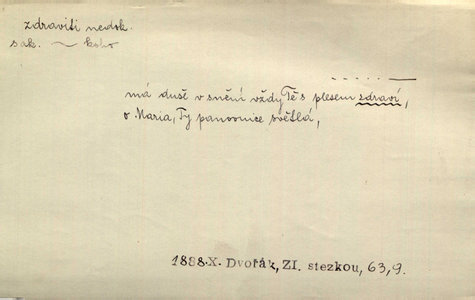 zdraviti nedok.
sak. ~ koho
má duše v snění vždy Tě s plesem zdraví,
o Maria, Ty panovnice světlá,
1888.X. Dvořák, ZI. stezkou, 63,9.